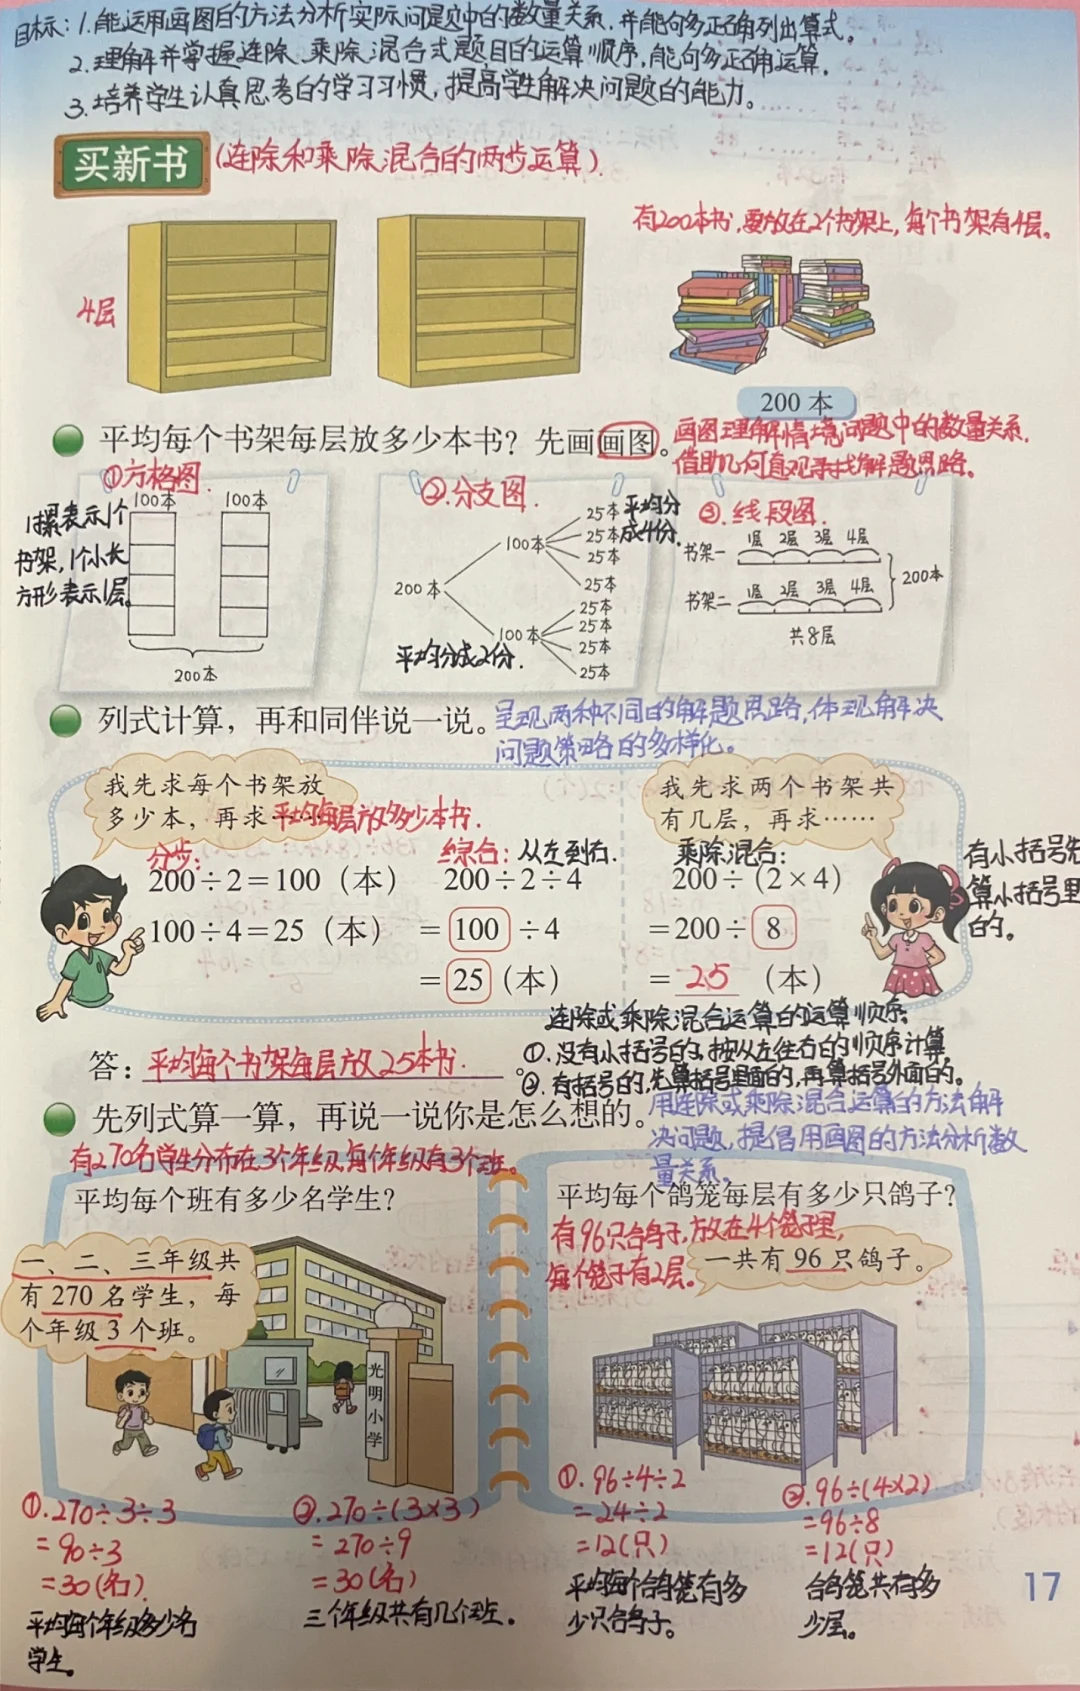 目标：1.能运用画图的方法分析实际问题中的数量关系，并能够多正确列出算式。
2.理解并掌握连除、乘除混合式题目的运算顺序，能够多正确运算。
3.培养学生认真思考的学习习惯，提高学生解决问题的能力。
买新书
(连除和乘除混合的两步运算)
有200本书，要放在2个书架上，每个书架有4层。
4层
200 本
平均每个书架每层放多少本书？先画画图。
画图理解情境问题中的数量关系，
借助几何直观寻找解题思路。
①方格图.
100本 100本
1摞表示1个
书架，1个小长
方形表示1层。
200本
②.分支图.
200本
100本
100本
25本
25本
25本
25本
25本
25本
25本
25本
平均分
成4份.
平均分成2份.
③.线段图.
书架一 1层 2层 3层 4层
书架二 1层 2层 3层 4层
200本
共8层
列式计算，再和同伴说一说。
呈现两种不同的解题思路，体现解决
问题策略的多样化。
我先求每个书架放
多少本，再求……
平均每层放多少本书.
我先求两个书架共
有几层，再求……
分步：
200÷2＝100（本）
100÷4＝25（本）
综合：从左到右.
200÷2÷4
＝100÷4
＝25（本）
乘除混合：
200÷（2×4）
＝200÷8
＝25（本）
有小括号先
算小括号里
的。
连除或乘除混合运算的运算顺序：
①.没有小括号的，按从左往右的顺序计算。
②.有括号的，先算括号里面的，再算括号外面的。
答：平均每个书架每层放25本书.。
先列式算一算，再说一说你是怎么想的。
用连除或乘除混合运算的方法解
决问题，提倡用画图的方法分析数
量关系。
有270名学生分布在3个年级，每个年级有3个班。
平均每个班有多少名学生？
一、二、三年级共
有 270 名学生，每
个年级 3 个班。
光明小学
平均每个鸽笼每层有多少只鸽子？
有96只鸽子，放在4个笼子里，
每个笼子有2层。
一共有 96 只鸽子。
①.270÷3÷3
=90÷3
=30(名).
平均每个年级多少名
学生。
②.270÷(3×3)
=270÷9
=30(名)
三个年级共有几个班。
①.96÷4÷2
=24÷2
=12(只)
平均每个鸽笼有多
少只鸽子。
②.96÷(4×2)
=96÷8
=12(只)
鸽笼共有多
少层。
17